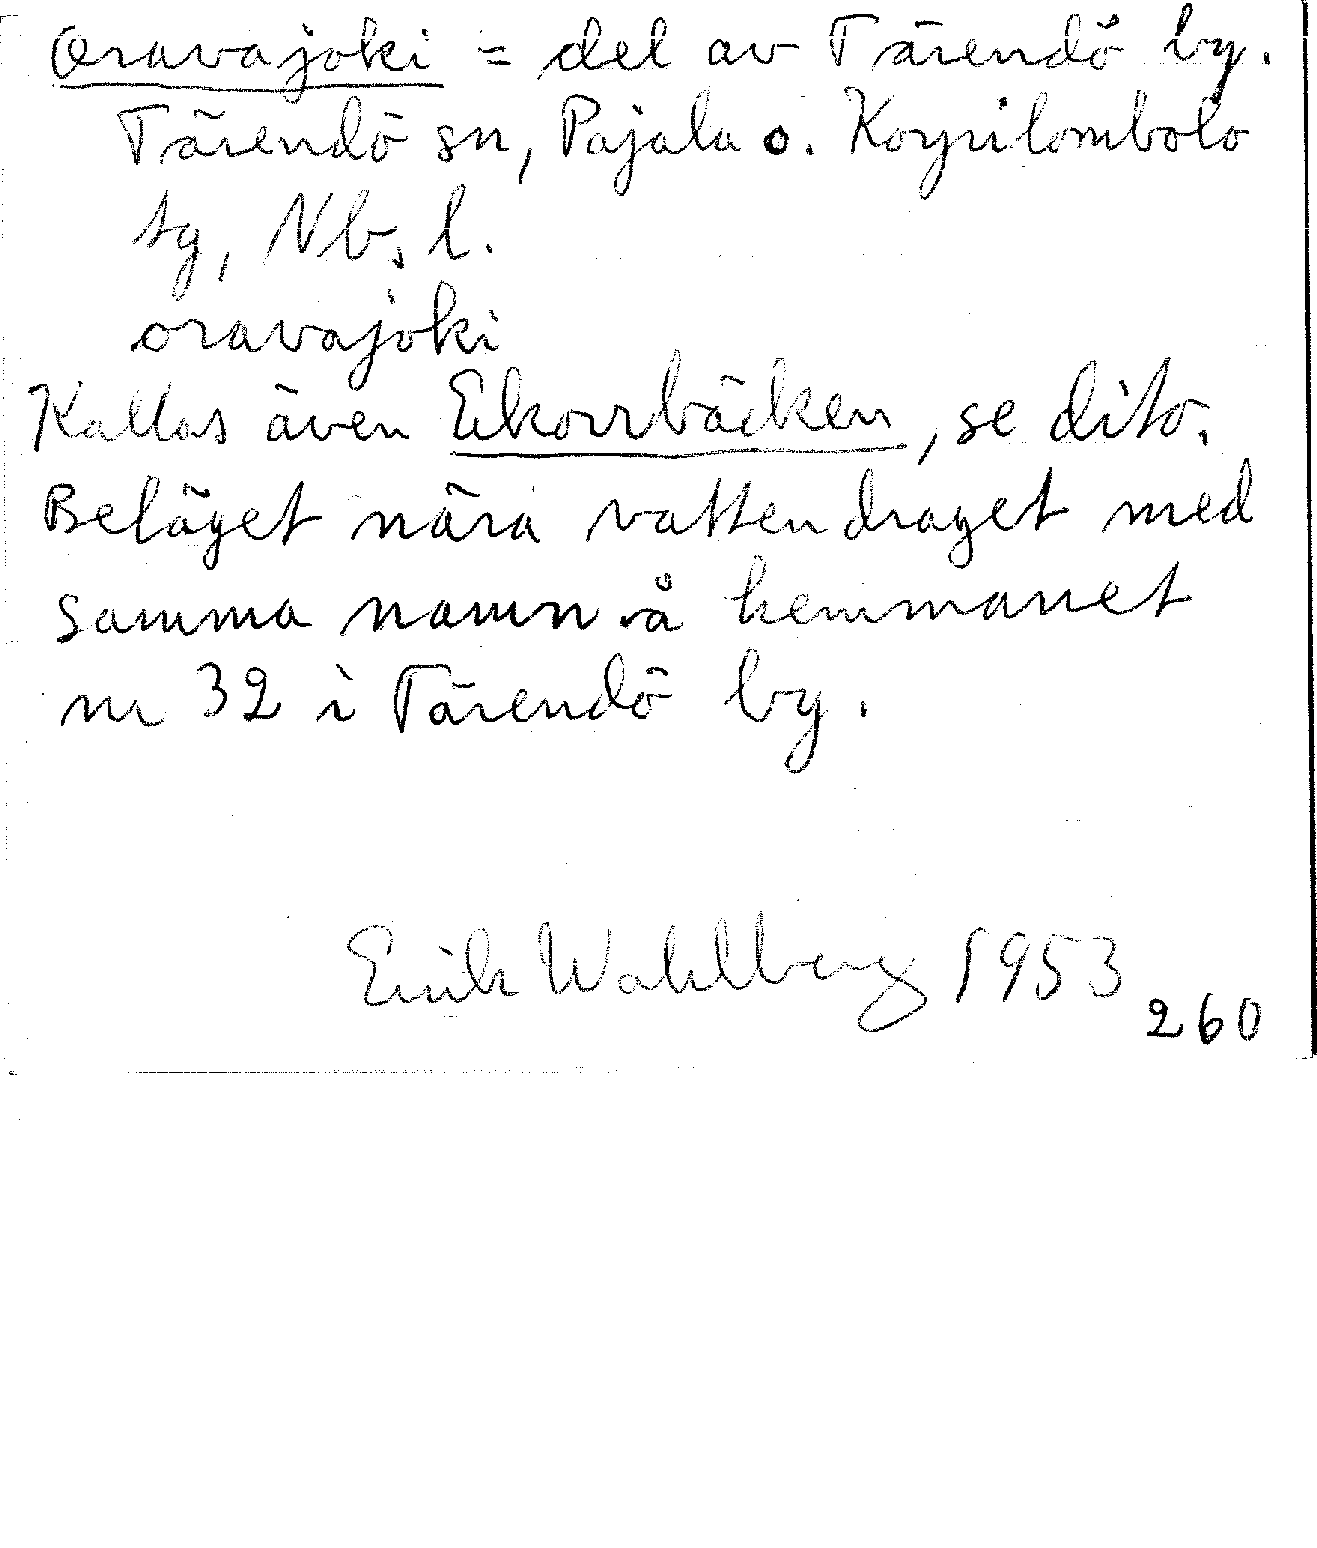 Oravajoki = del av Tärendö by.
Tärendö sn, Pajala o. Korpilombolo
tg, Nb. l.
oravajoki
Kallas även Ekorrbäcken, se dito.
Beläget nära vattendraget med
samma namn å hemmanet
nr 32 i Tärendö by.
Erik Wahlberg 1953
260